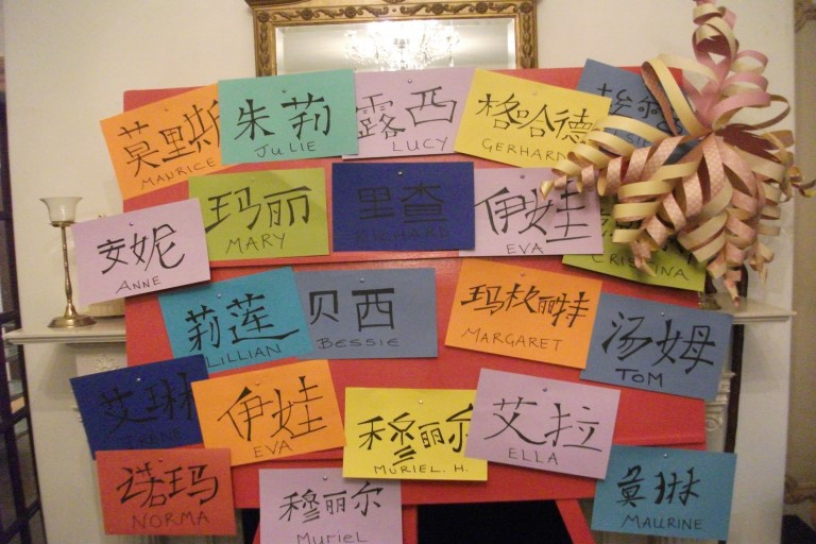 莫里斯
MAURICE
朱莉
JULIE
露西
LUCY
格哈德
GERHARD
玛丽
MARY
里查
RICHARD
伊娃
EVA
CRISTINA
安妮
ANNE
莉莲
LILLIAN
贝西
BESSIE
玛格丽特
MARGARET
汤姆
TOM
艾琳
IRENE
伊娃
EVA
穆丽尔
MURIEL. H.
艾拉
ELLA
诺玛
NORMA
穆丽尔
Muriel
莫琳
MAURINE